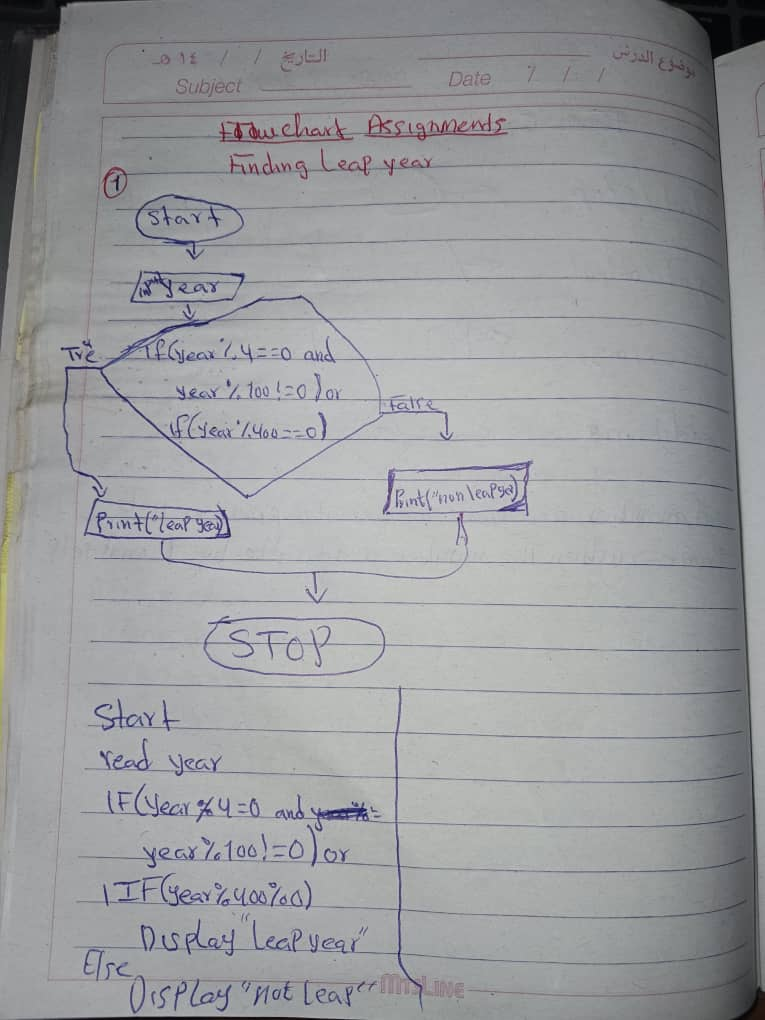 ١٤ هـ / / التاريخ موضوع الدرس
Subject Date / / /
Flowchart Assignments
Finding leap year
1
Start
input year
True
If(year % 4==0 and
year % 100!=0) or
if(year % 400==0)
False
Print("leap year)
Print("non leap
STOP
Start
read year
IF(year % 4=0 and
year % 100!=0) or
IF(year%400%0)
Display "leap year"
Else
Display "not leap"
MTSLINE